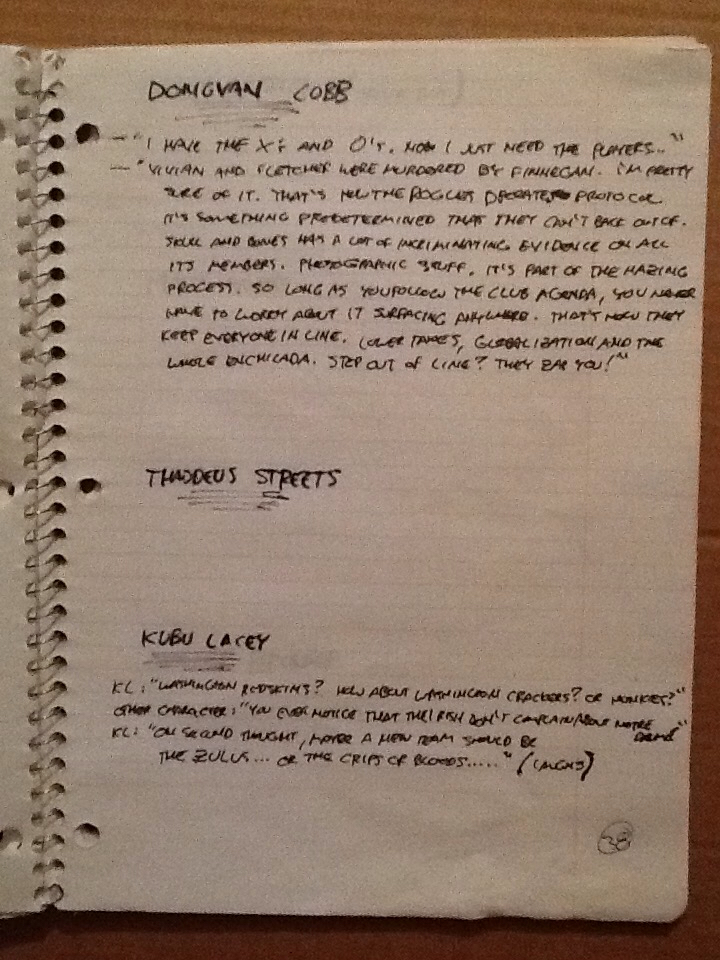 DONOVAN COBB
— "I HAVE THE X's AND O's. NOW I JUST NEED THE PLAYERS..."
— "VIVIAN AND FLETCHER WERE MURDERED BY FINNEGAN. I'M PRETTY
SURE OF IT. THAT'S HOW THE ROGUES OPERATE PROTOCOL.
IT'S SOMETHING PREDETERMINED THAT THEY CAN'T BACK OUT OF.
SKULL AND BONES HAS A LOT OF INCRIMINATING EVIDENCE ON ALL
ITS MEMBERS. PHOTOGRAPHIC STUFF. IT'S PART OF THE HAZING
PROCESS. SO LONG AS YOU FOLLOW THE CLUB AGENDA, YOU NEVER
HAVE TO WORRY ABOUT IT SURFACING ANYWHERE. THAT'S HOW THEY
KEEP EVERYONE IN LINE. LOWER TAXES, GLOBALIZATION AND THE
WHOLE ENCHILADA. STEP OUT OF LINE? THEY ZAP YOU!"
THADDEUS STREETS
KUBU LACEY
KL: "WASHINGTON REDSKINS? HOW ABOUT WASHINGTON CRACKERS? OR HONKIES?"
OTHER CHARACTER: "YOU EVER NOTICE THAT THE IRISH DON'T COMPLAIN ABOUT NOTRE DAME"
KL: "ON SECOND THOUGHT, MAYBE A NEW TEAM SHOULD BE
THE ZULUS... OR THE CRIPS OR BLOODS....." (LAUGHS)
38